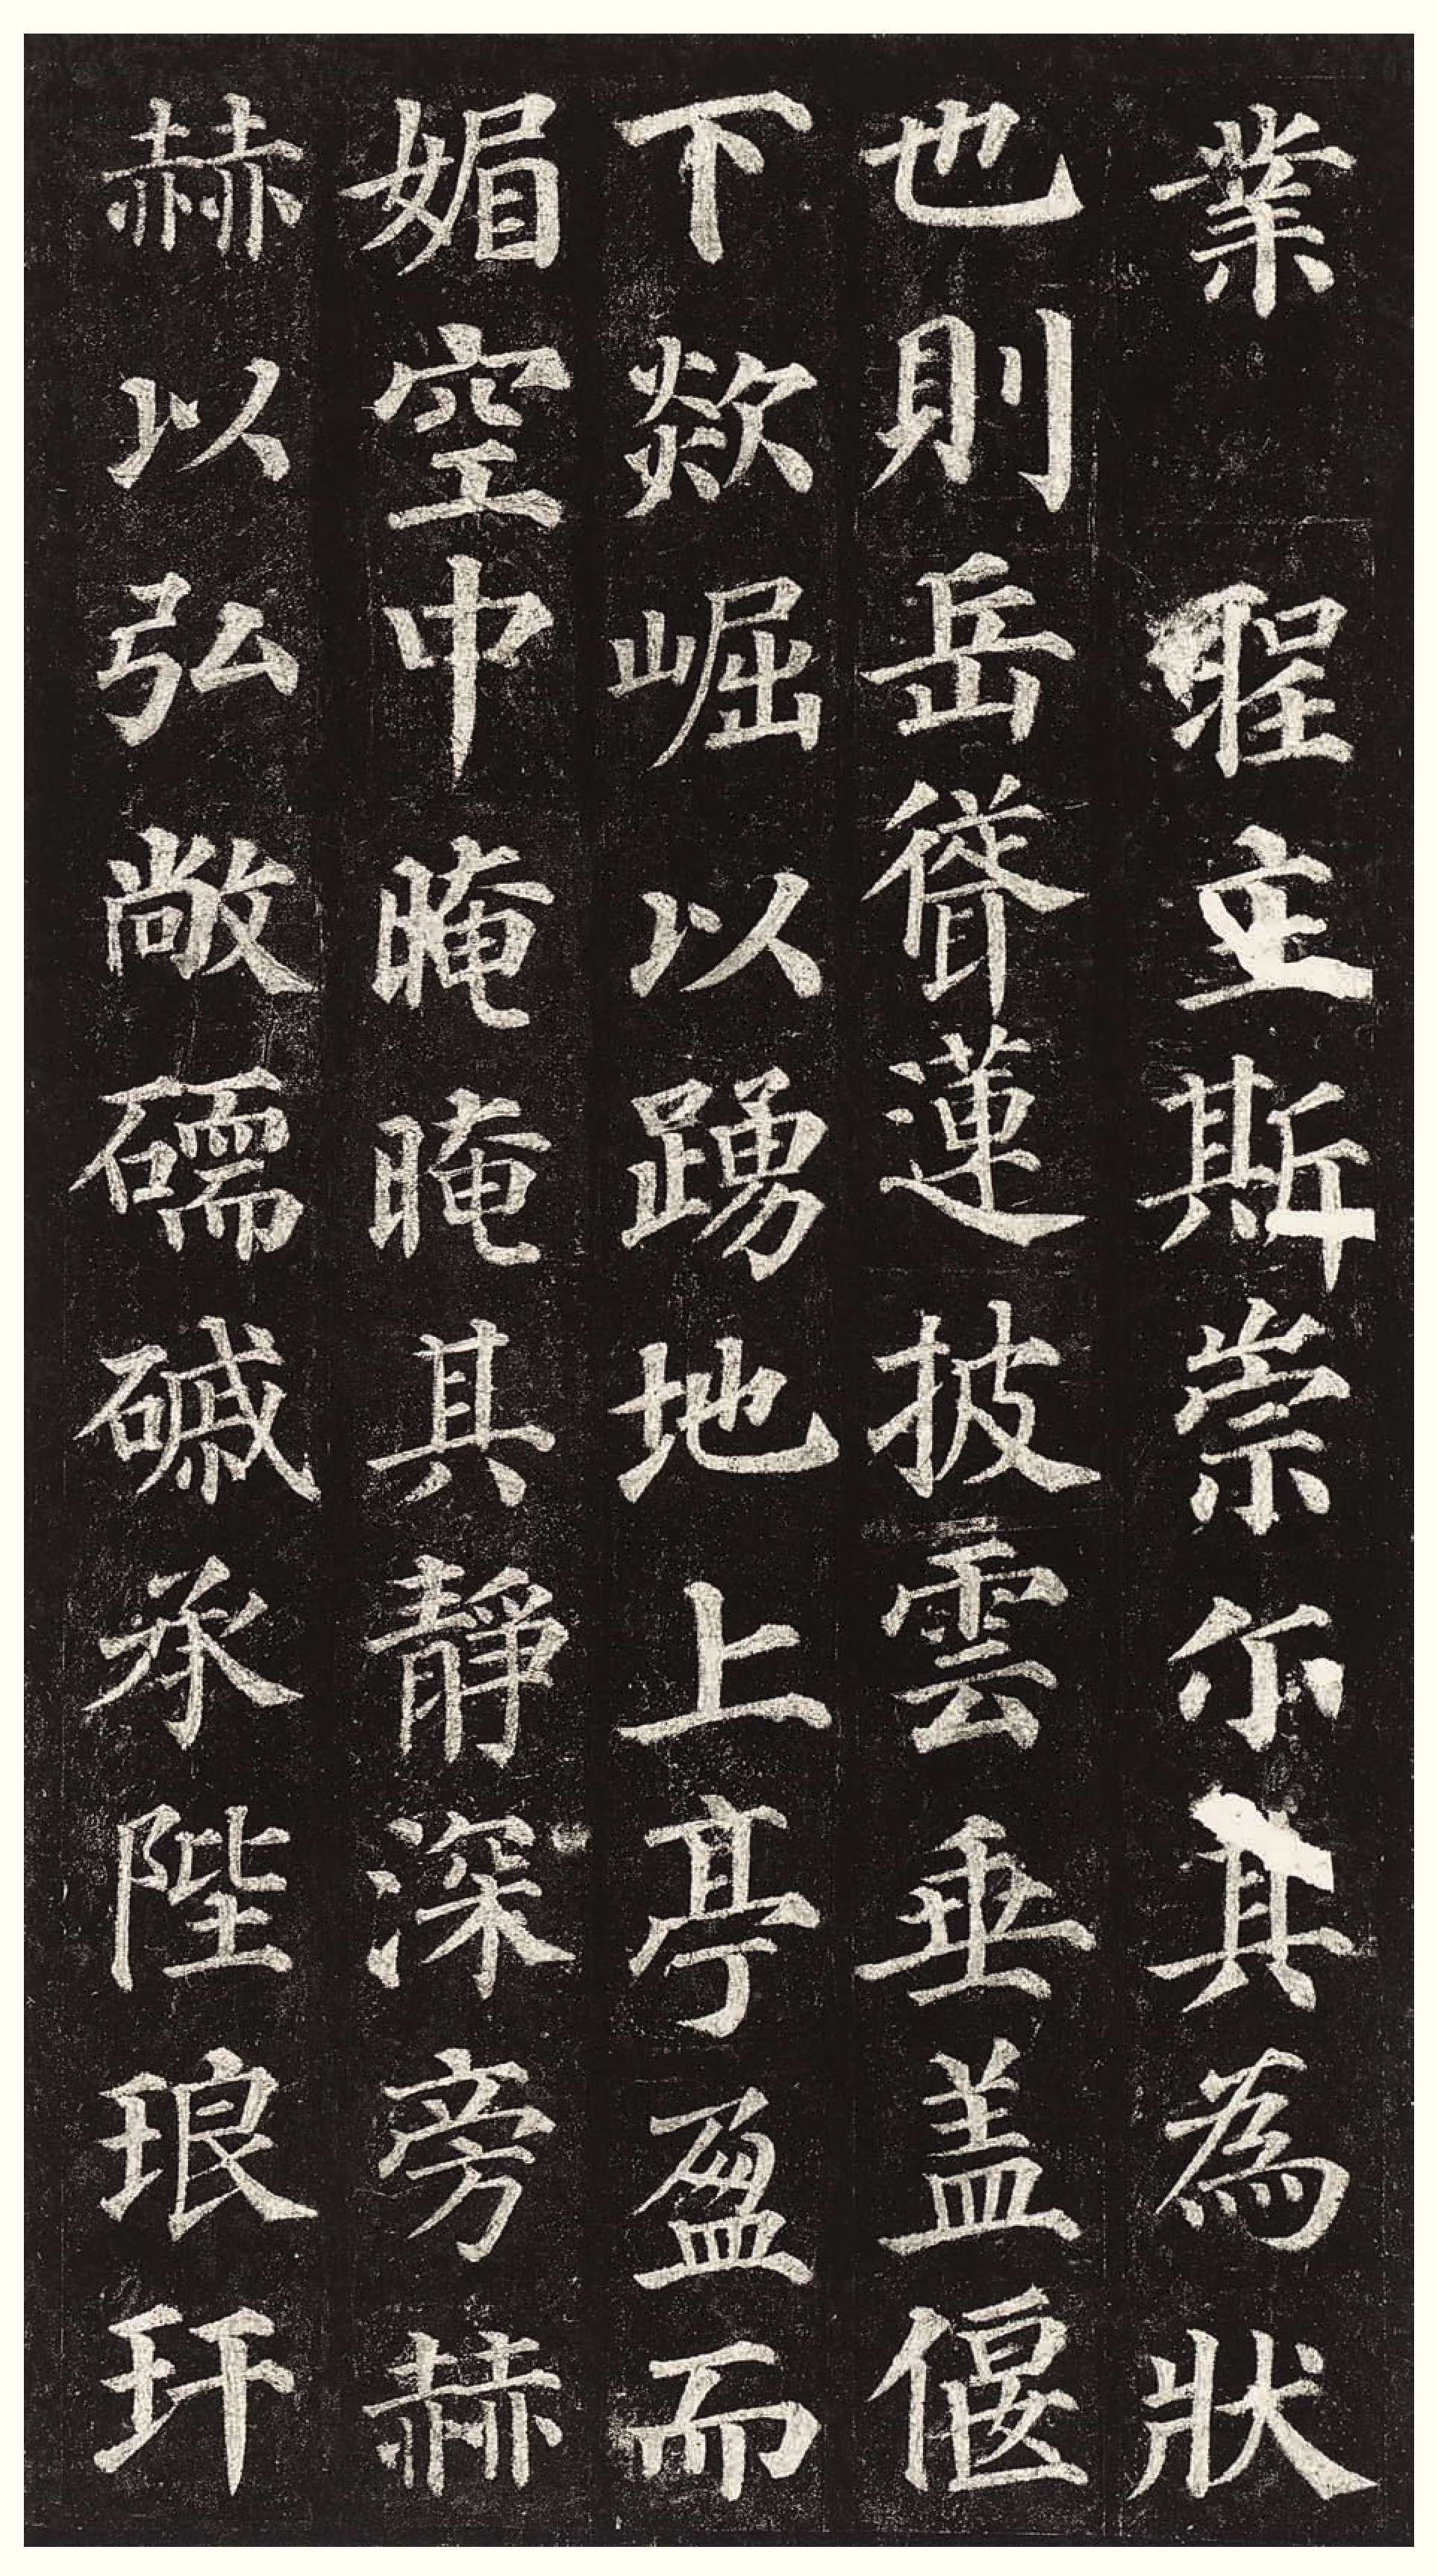 業　聖主斯崇尒其為狀
也則岳聳蓮披雲垂蓋偃
下欻崛以踴地上亭盈而
媚空中晻晻其靜深旁赫
赫以弘敞礝磩承陛琅玕